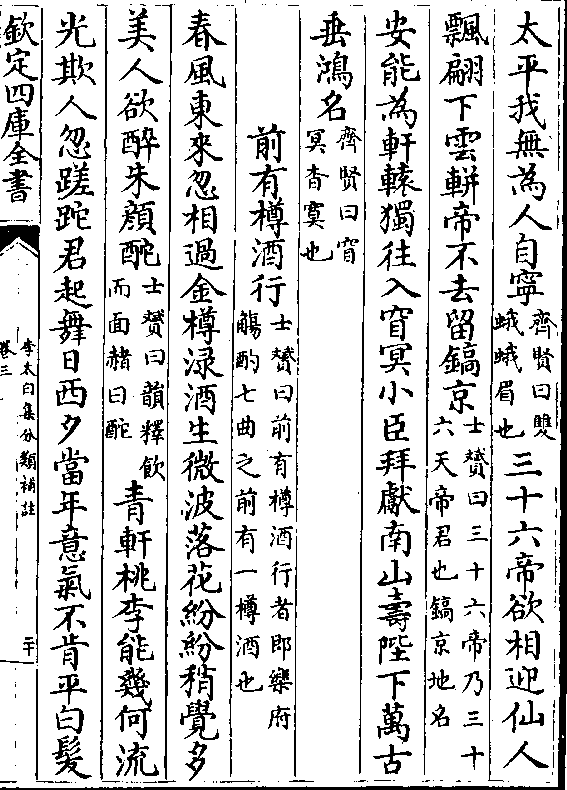 太平我無為人自寧齊賢曰雙蛾蛾眉也三十六帝欲相迎仙人
飄翩下雲軿帝不去留鎬京士贇曰三十六帝乃三十六天帝君也鎬京地名
安能為軒轅獨往入窅冥小臣拜獻南山壽陛下萬古
垂鴻名齊賢曰窅冥杳寞也
前有樽酒行士贇曰前有樽酒行者即樂府觴酌七曲之前有一樽酒也
春風東來忽相過金樽渌酒生微波落花紛紛稍覺多
美人欲醉朱顏酡士贇曰韻釋飲而面赭曰酡青軒桃李能幾何流
光欺人忽蹉跎君起舞日西夕當年意氣不肯平白髪
欽定四庫全書
李太白集分類補註
卷三
二十